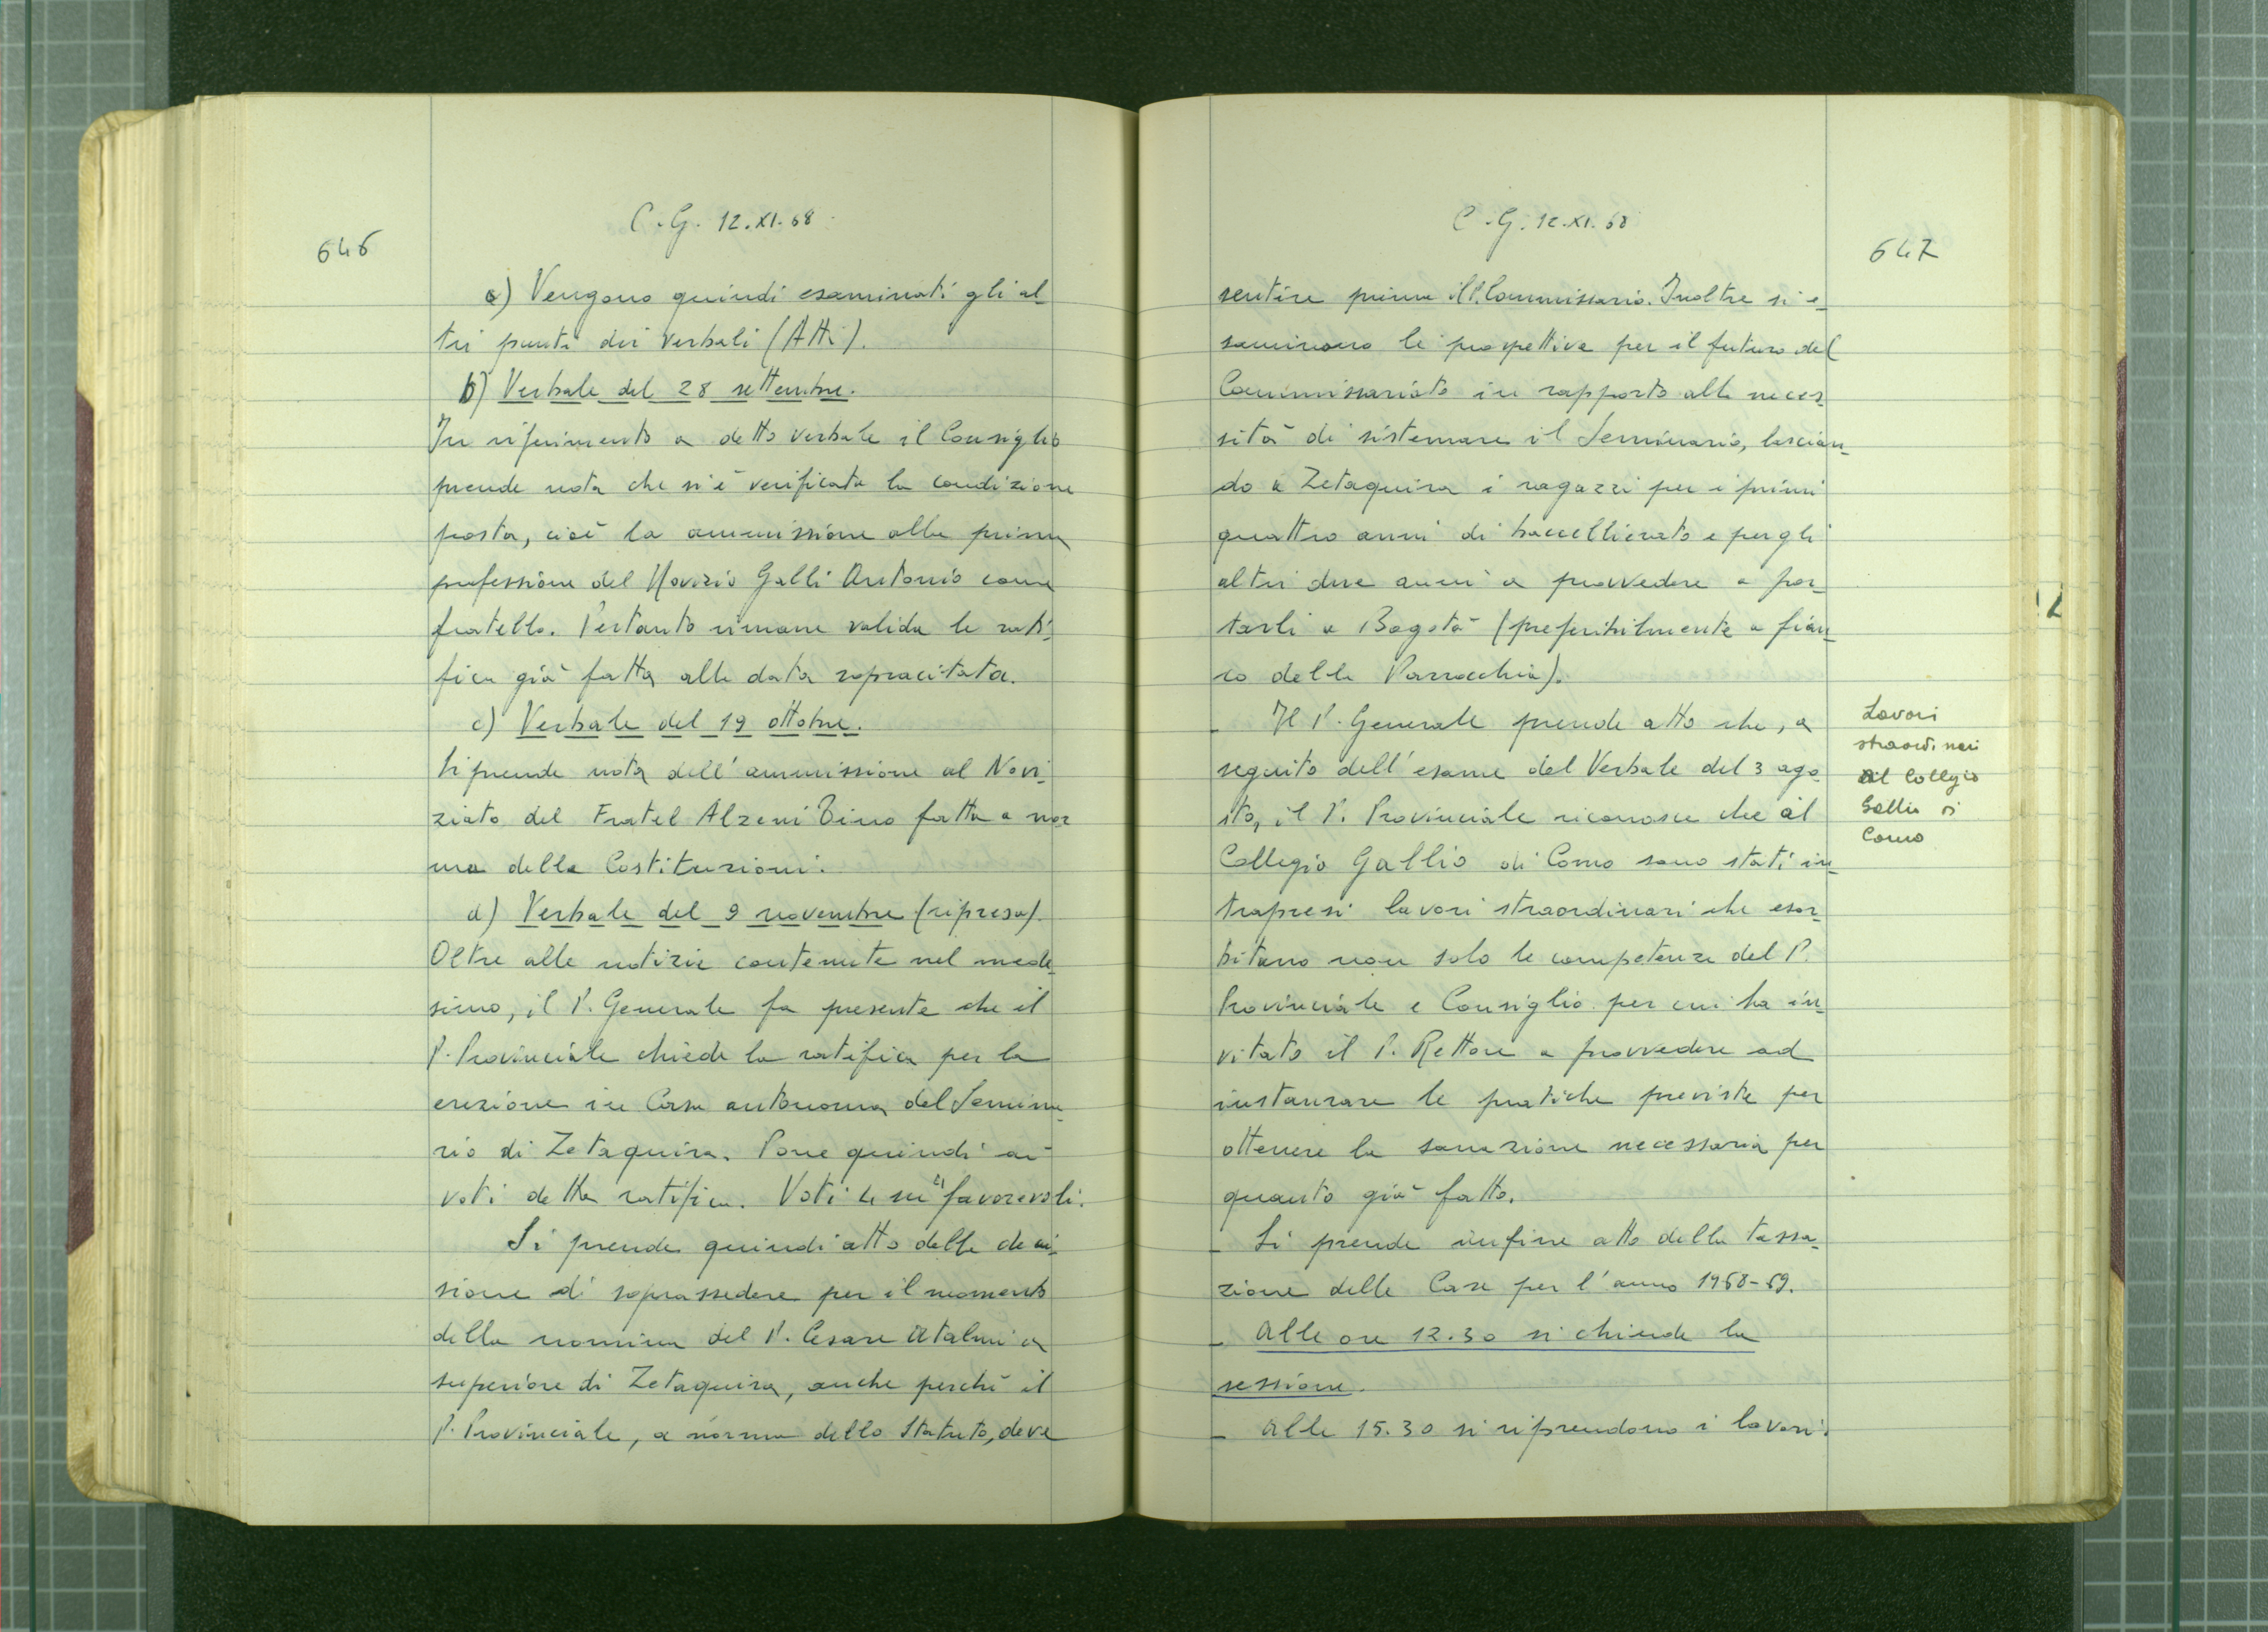 646
C.G. 12.XI.68
a) Vengono quindi esaminati gli al-
tri punti dei Verbali (Atti).
b) Verbale del 28 settembre.
In riferimento a detto verbale il Consiglio
prende nota che si è verificata la condizione
posta, cioè la ammissione alla prima
professione del Novizio Galli Antonio come
fratello. Pertanto rimane valida la rati-
fica già fatta alla data sopracitata.
c) Verbale del 19 ottobre.
Si prende nota dell'ammissione al Novi-
ziato del Fratel Alzeni Bino fatta a nor-
ma delle Costituzioni.
d) Verbale del 9 novembre (ripresa).
Oltre alle notizie contenute nel mede-
simo, il P. Generale fa presente che il
P. Provinciale chiede la ratifica per la
erezione in Casa autonoma del Semina-
rio di Zetaquira. Pone quindi ai
voti detta ratifica. Voti 4 su 4 favorevoli.
Si prende quindi atto della deci-
sione di soprassedere per il momento
della nomina del P. Cesare Atalmi a
superiore di Zetaquira, anche perché il
P. Provinciale, a norma dello Statuto, deve
C.G. 12.XI.68
647
sentire prima il P. Commissario. Inoltre si e-
saminano le prospettive per il futuro del
Commissariato in rapporto alla neces-
sità di sistemare il Seminario, lascian-
do a Zetaquira i ragazzi per i primi
quattro anni di baccellierato e per gli
altri due anni a provvedere a por-
tarli a Bogotà (preferibilmente a fian-
co della Parrocchia).
- Il P. Generale prende atto che, a
seguito dell'esame del Verbale del 3 ago-
sto, il P. Provinciale riconosce che al
Collegio Gallio di Como sono stati in-
trapresi lavori straordinari che esor-
bitano non solo le competenze del P.
Provinciale e Consiglio per cui ha in-
vitato il P. Rettore a provvedere ad
instaurare le pratiche previste per
ottenere la sanazione necessaria per
quanto già fatto.
- Si prende infine atto della tassa-
zione delle Case per l'anno 1968-69.
- Alle ore 12.30 si chiude la
sessione.
- Alle 15.30 si riprendono i lavori.
Lavori
straordinari
al Collegio
Gallio di
Como